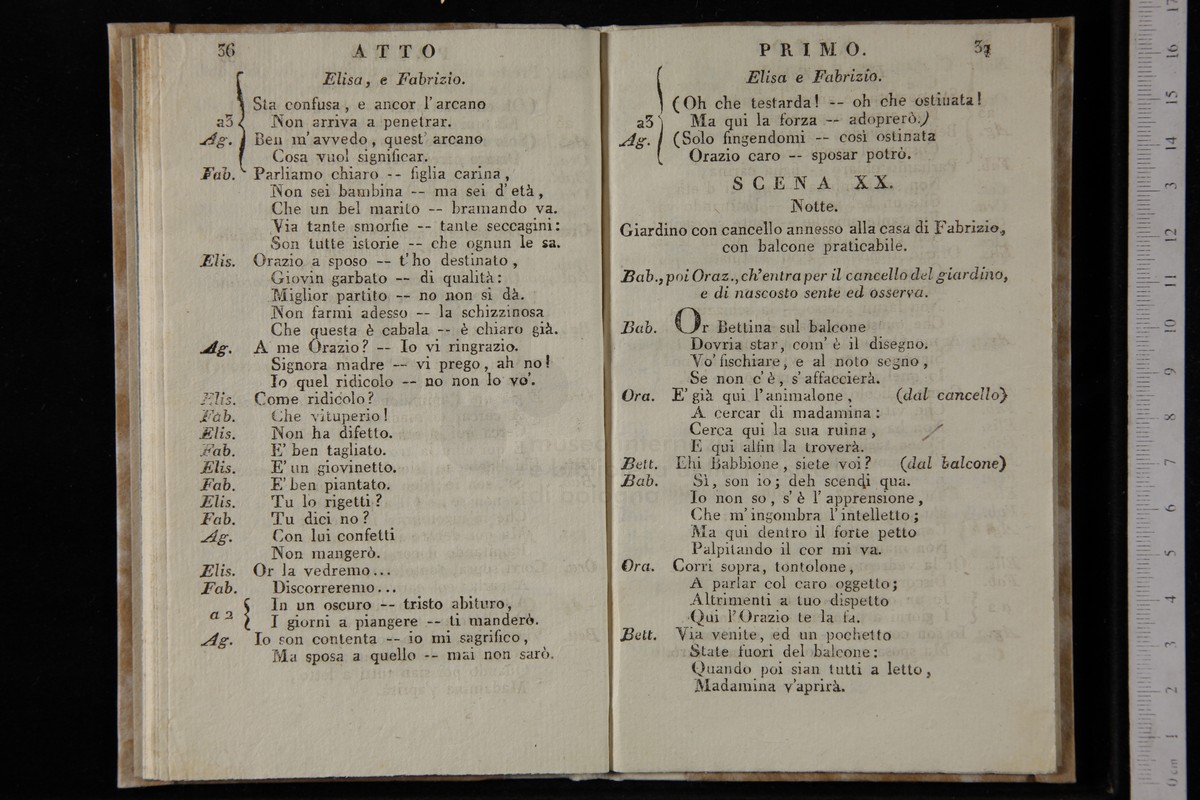 36 ATTO
Elisa, e Fabrizio.
Sta confusa, e ancor l'arcano
a3 Non arriva a penetrar.
Ag. Ben m'avvedo, quest' arcano
Cosa vuol significar.
Fab. Parliamo chiaro -- figlia carina,
Non sei bambina -- ma sei d'età,
Che un bel marito -- bramando va.
Via tante smorfie -- tante seccagini:
Son tutte istorie -- che ognun le sa.
Elis. Orazio a sposo -- t'ho destinato,
Giovin garbato -- di qualità:
Miglior partito -- no non si dà.
Non farmi adesso -- la schizzinosa
Che questa è cabala -- è chiaro già.
Ag. A me Orazio? -- Io vi ringrazio.
Signora madre -- vi prego, ah no!
Io quel ridicolo -- no non lo vo'.
Elis. Come ridicolo?
Fab. Che vituperio!
Elis. Non ha difetto.
Fab. E' ben tagliato.
Elis. E' un giovinetto.
Fab. E' ben piantato.
Elis. Tu lo rigetti?
Fab. Tu dici no?
Ag. Con lui confetti
Non mangerò.
Elis. Or la vedremo...
Fab. Discorreremo...
a 2 In un oscuro -- tristo abituro,
I giorni a piangere -- ti manderò.
Ag. Io son contenta -- io mi sagrifico,
Ma sposa a quello -- mai non sarò.
PRIMO. 37
Elisa e Fabrizio.
(Oh che testarda! -- oh che ostinata!
a3 Ma qui la forza -- adoprerò.)
Ag. (Solo fingendomi -- così ostinata
Orazio caro -- sposar potrò.
SCENA XX.
Notte.
Giardino con cancello annesso alla casa di Fabrizio,
con balcone praticabile.
Bab., poi Oraz., ch'entra per il cancello del giardino,
e di nascosto sente ed osserva.
Bab. Or Bettina sul balcone
Dovria star, com' è il disegno.
Vo' fischiare, e al noto segno,
Se non c'è, s'affaccierà.
Ora. E' già qui l'animalone, (dal cancello)
A cercar di madamina:
Cerca qui la sua ruina,
E qui alfin la troverà.
Bett. Ehi Babbione, siete voi? (dal balcone)
Bab. Sì, son io; deh scendi qua.
Io non so, s'è l'apprensione,
Che m'ingombra l'intelletto;
Ma qui dentro il forte petto
Palpitando il cor mi va.
Ora. Corri sopra, tontolone,
A parlar col caro oggetto;
Altrimenti a tuo dispetto
Qui l'Orazio te la fa.
Bett. Via venite, ed un pochetto
State fuori del balcone:
Quando poi sian tutti a letto,
Madamina v'aprirà.